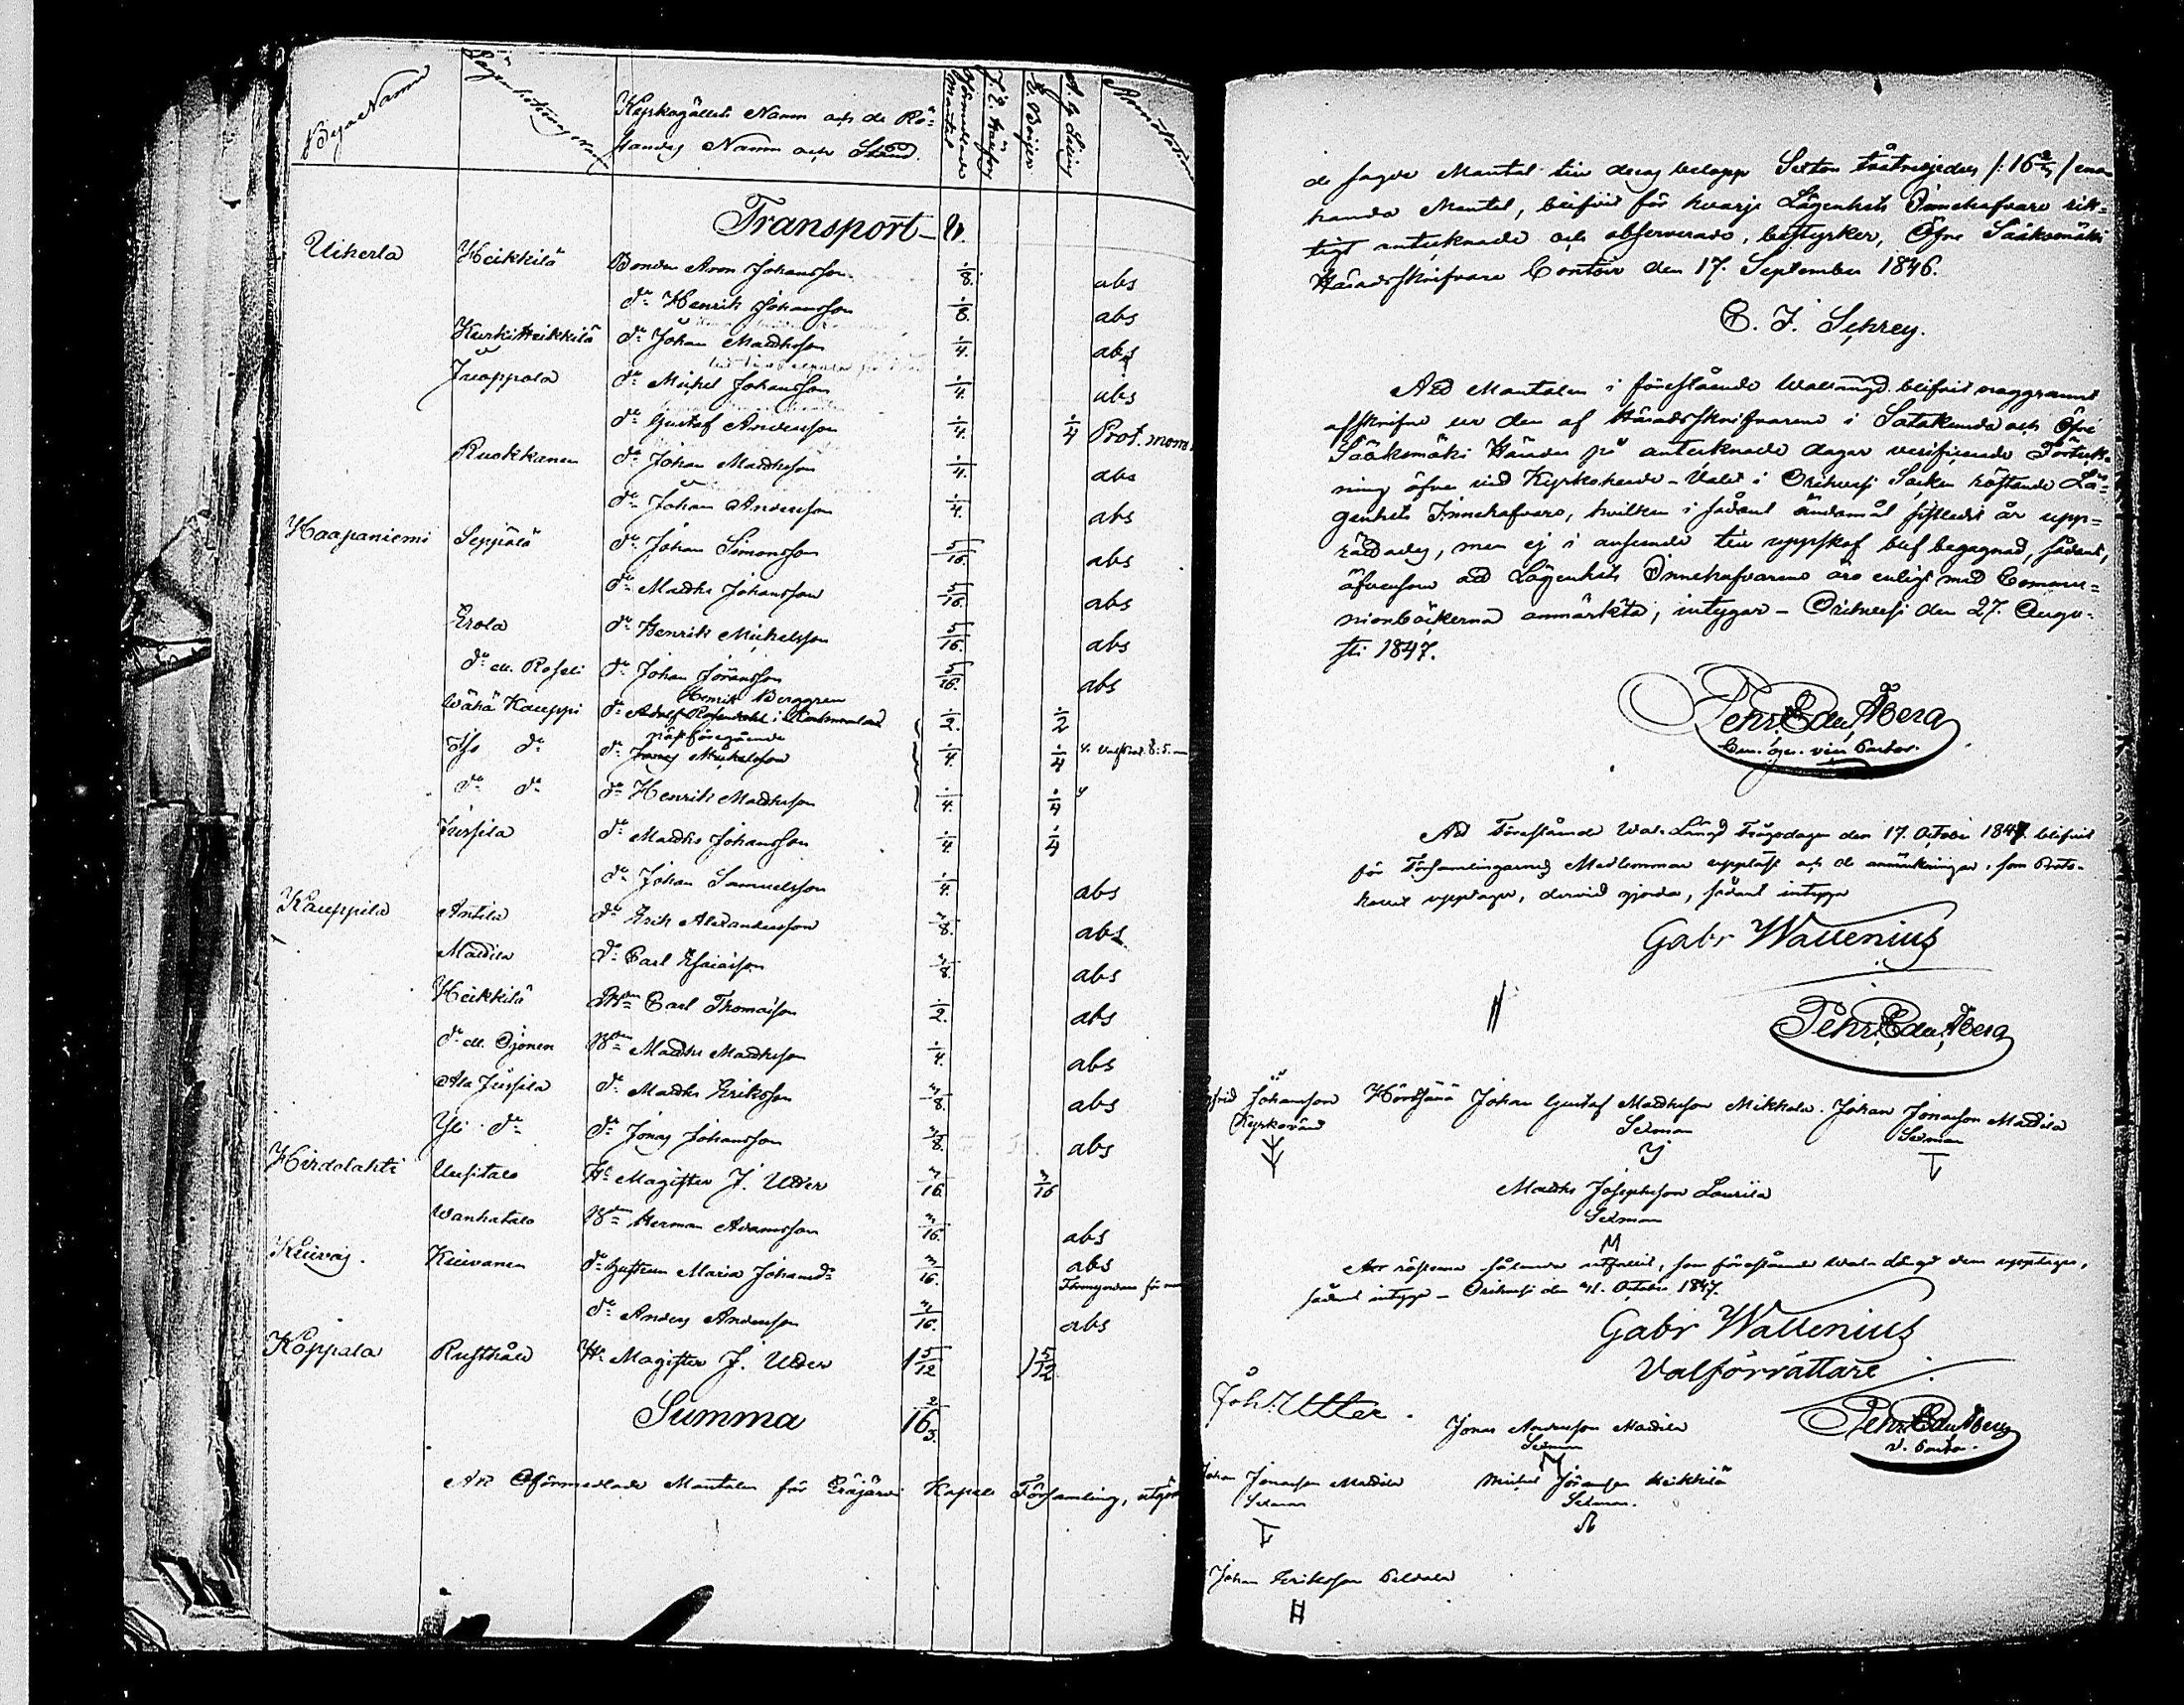 Bya Namn Lägenheternas Namn Kyrkogällets Namn och de Rö- Oförmedlade Mantal
standes Namn och Stånd.
Transport
Uiherla Heikkilä Bonden Aron Johansson 1/8. abs
do Henrik Johansson 1/8. abs
KurkiHeikkilä do Johan Matthsson 1/4. abs
Jaoppola do Michel Johansson 1/4. abs
do Gustaf Andersson 1/4. 1/4 Prot. mom.
Ruokkanen do Johan Matthsson 1/4. abs
do Johan Andersson 1/4. abs
Haapaniemi Seppälä do Johan Simonsson 5/16. abs
do Matths Johansson 5/16. abs
Erola do Henrik Michelsson 5/16. abs
do ell. Roseli do Johan Göransson 5/16. abs
Henrik Berggren
Wähä Kauppi do Adolf Rosendahl 1/2. 1/2
näst föregående
Iso do do Jonas Michelsson 1/4. 1/4
do do do Henrik Matthsson 1/4. 1/4
Jussila do Matths Johansson 1/4. 1/4
do Johan Samuelsson 1/4. abs
Kauppila Antila do Erik Alexandersson 3/8. abs
Mattila do Carl Esaiasson 3/8. abs
Heikkilä Carl Thomasson 1/2. abs
do ell. Ojonen Bdn Matths Matthsson 1/4. abs
Ala Jussila do Matths Eriksson 3/8. abs
Yli do do Jonas Johansson 3/8. abs
Hirdolahti Uusitalo Hr Magister J. Utter 3/16. 3/16
Wanhatalo Bdn Herman Adamsson 3/16. abs
Kiivas. Kiivanen do Hustrun Maria Johansdr 3/16. abs
do Anders Andersson 3/16. abs
Koppala Rusthåll Hr Magister J. Utter 1 5/12 1 5/12.
Summa 16 2/3.
Att Oförmedlade Mantalen för Eräjärvi Kapell Församling, utgöra
de sagde Mantal till deras belopp Sexton tvåtredjedels /: 16 2/3 /
handa Mantal, blifvit för hvarje Lägenhets Innehafvare rik-
tigt antecknade och observerade, bestyrker, Öfre Sääksmäki
Häradsskrifvare Contoir den 17. September 1846.
C. J. Schrey.
Att Mantalen i föreståendo Wallängd blifvit noggrannt
afskrifne ur den af Häradsskrifvarene i Satakunda och Öfre
Sääksmäki Härader på antecknade dagar verificerade Förteck-
ning öfver vid Kyrkoherde-Valet i Orihvesi Socken röstande Lä-
genhets Innehafvare, hvilken i sådant ändamål sistledit år upp-
rättades, men ej i anseende till uppskof blef begagnad, sådant,
äfvensom att Lägenhets Innehafvarene äro enligt med Commu-
nionböckerna anmärkta, intygar - Orihvesi den 27. Augu-
sti 1847.
Pehr Edu. Åberg
vice Pastor.
Att Förestående Wal-Längd Fredagen den 17. October 1847. blifvit
för Församlingarnes Medlemmar uppläst och de anmärkningar, som Proto-
kollet upptager, dervid gjorda, sådant intyga
Gabr Wallenius
Pehr. Edu. Åberg
Johansson Hörtsänä Johan Gustaf Matthsson Mikkola. Johan Jonasson Mattila
Kyrkovärd Sexman Sexman
Matths Josephsson Laurila
Sexman
M
Att rösterna sålunda utfallit, som förestående Wal-Längd dem upptager,
sådant intyga - Orihvesi den 21. October 1847.
Gabr Wallenius
Valförrättare
Joh. Utter. Jonas Andersson Mattila Pehr Edu. Åberg
Sexman v. Pastor.
Johan Jonasson Mattila Michel Göransson Heikkilä
Sexman Sexman.
Johan Eriksson
H